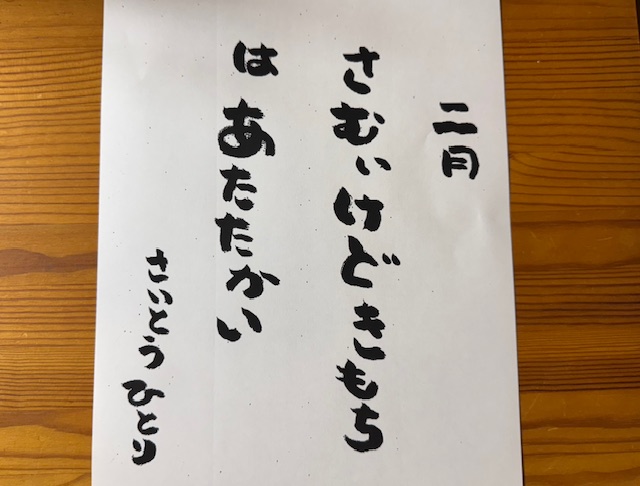 二月
さむいけどきもち
は あたたかい
さいとうひとり